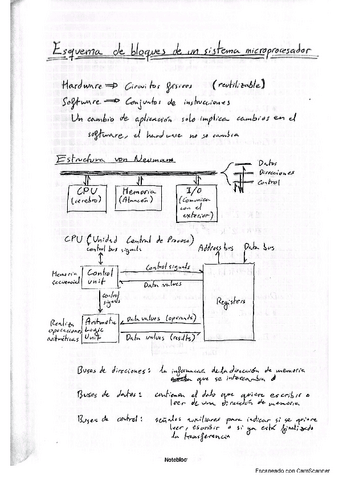 Esquema de bloques de un sistema microprocesador
Hardware ⇒ Circuitos físicos (reutilizable)
Software ⇒ Conjuntos de instrucciones
Un cambio de aplicación solo implica cambios en el
software, el hardware no se cambia
Estructura von Neumann
Datos
Direcciones
Control
CPU
(cerebro)
Memoria
(Almacén)
I/O
(Comunica
con el
exterior)
CPU (Unidad Central de Proceso)
control bus signals
Address bus
Data bus
Memoria
secuencial
Control
unit
Control signals
Data values
control
signals
Registers
Realiza
operaciones
aritméticas
Aritmetic
Logic
Unit
Data values (operands)
Data values (results)
Buses de direciones: la informacion de la dirección de memoria
que se intercambia
Buses de datos: contienen el dato que quiere escribir o
leer de una dirección de memoria
Buses de control: señales auxiliares para indicar si se quiere
leer, escribir o si ya está finalizada
la transferencia
Notebloc
Escaneado con CamScanner